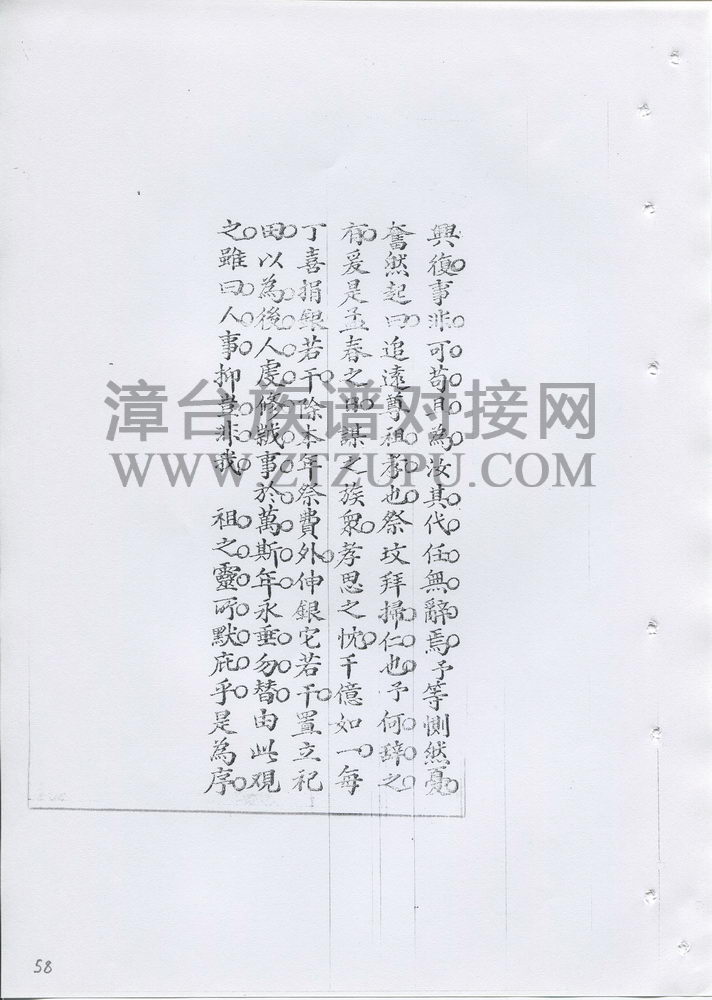 興復事非可苟且為汝其代任無辭焉予等惻然憂
奮然起曰追遠尊祖孝也祭坟拜掃仁也予何辞之
有爰是孟春之日謀之族衆孝思之忱千億如一每
丁喜捐銀若干除本年祭費外伸銀宅若干置立祀
田以為後人虔修戩事於萬斯年永垂勿替由此观
之雖曰人事抑豈非我 祖之靈所默庇乎是為序
漳台族谱对接网
WWW.ZTZUPU.COM
58